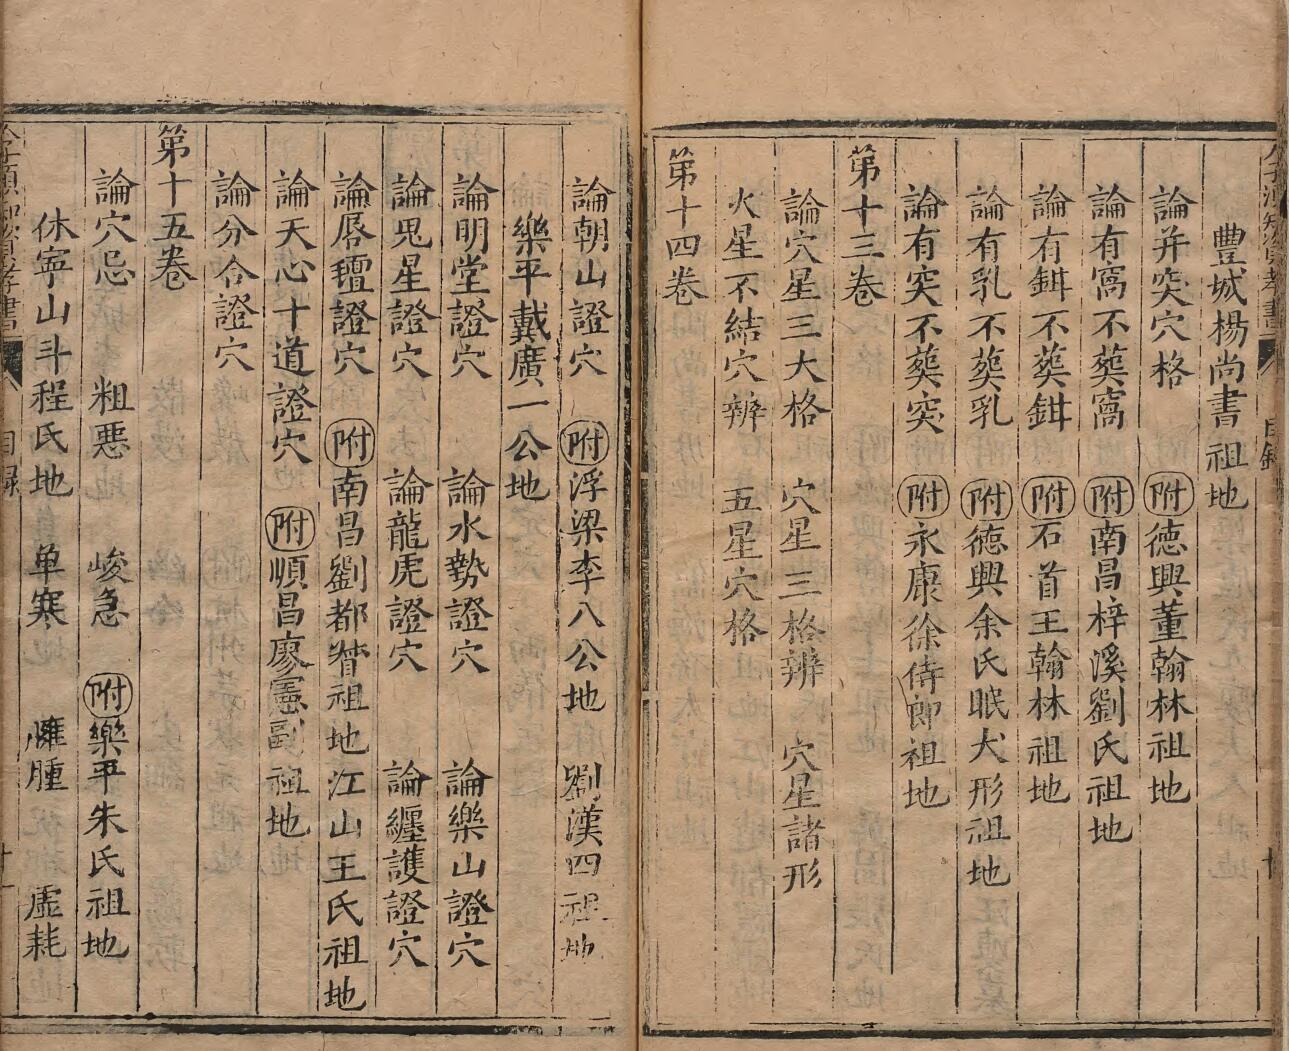 豐城楊尚書祖地
論并突穴格 附德興董翰林祖地
論有窩不葬窩 附南昌梓溪劉氏祖地
論有鉗不葬鉗 附石首王翰林祖地
論有乳不葬乳 附德興余氏眠犬形祖地
論有突不葬突 附永康徐侍郎祖地
第十三卷
論穴星三大格 穴星三格辨 穴星諸形
火星不結穴辨 五星穴格
第十四卷
論朝山證穴 附浮梁李八公地 劉漢四祖地
樂平戴廣一公地
論明堂證穴 論水勢證穴 論樂山證穴
論鬼星證穴 論龍虎證穴 論纏護證穴
論唇氊證穴 附南昌劉都督祖地 江山王氏祖地
論天心十道證穴 附順昌廖憲副祖地
論分合證穴
第十五卷
論穴忌 粗惡 峻急 附樂平朱氏祖地
休寕山斗程氏地 单寒 臃腫 虛耗
目録